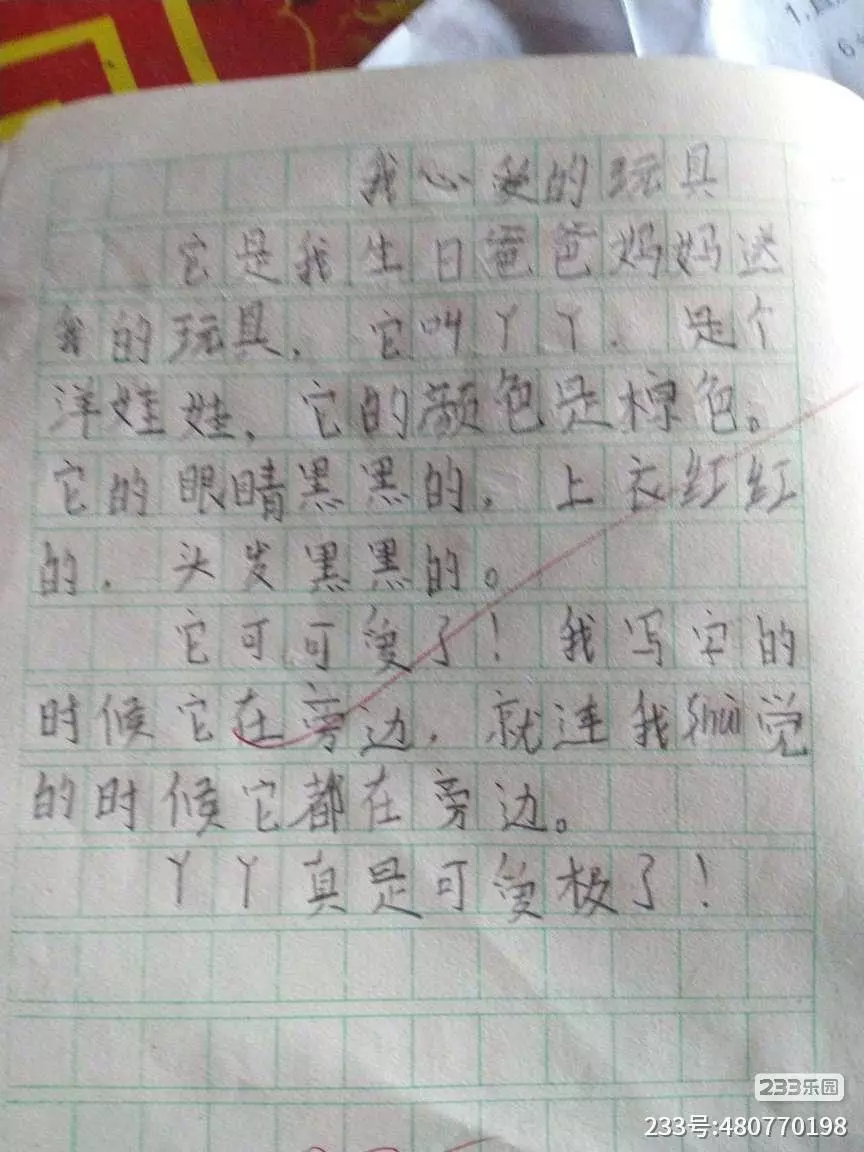 1.
6
我心爱的玩具
它是我生日爸爸妈妈送
我的玩具，它叫丫丫，是个
洋娃娃，它的颜色是棕色。
它的眼睛黑黑的，上衣红红
的，头发黑黑的。
它可可爱了！我写字的
时候它在旁边，就连我shuì觉
的时候它都在旁边。
丫丫真是可爱极了！
233乐园
233号:480770198